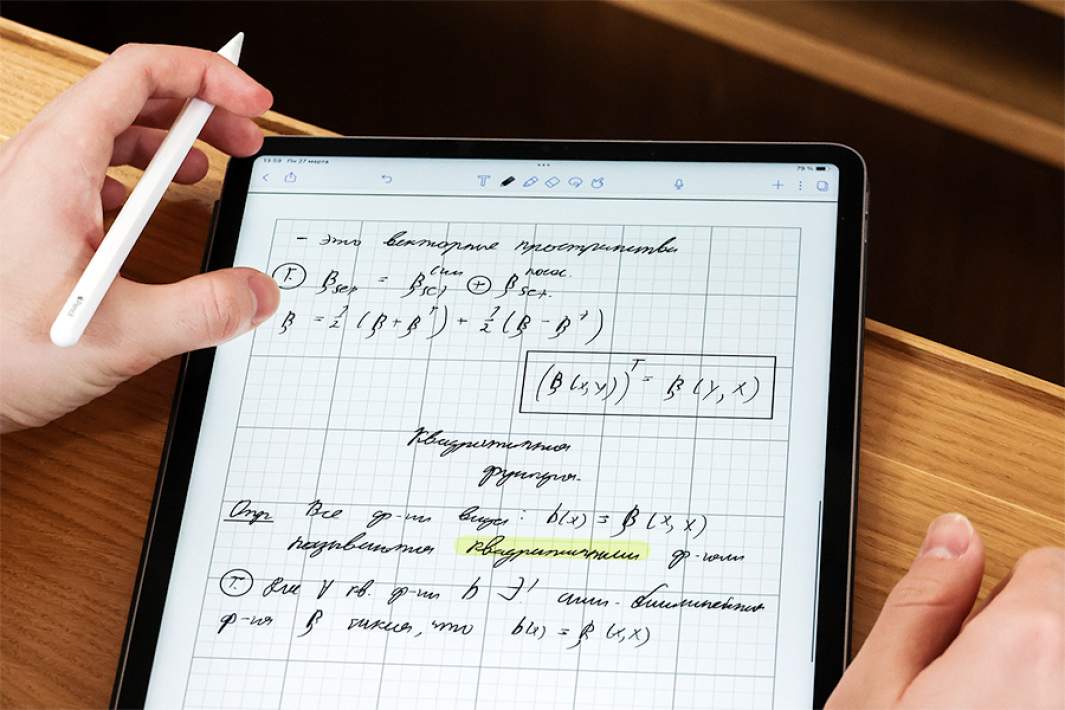 13:59 Пн 27 марта
79 %
– это векторные пространства
Т. β = β сим ⊕ β кос.
β = 1/2 (β + βᵀ) + 1/2 (β − βᵀ)
(β(x,y))ᵀ = β(y,x)
Квадратичная
функция.
Опр Все ф-ии вида: b(x) = β(x,x)
называются квадратичными ф-иями
Т. Для ∀ кв. ф-ии b ∃! симм. билинейная
ф-ия β такая, что b(x) = β(x,x)
Pencil